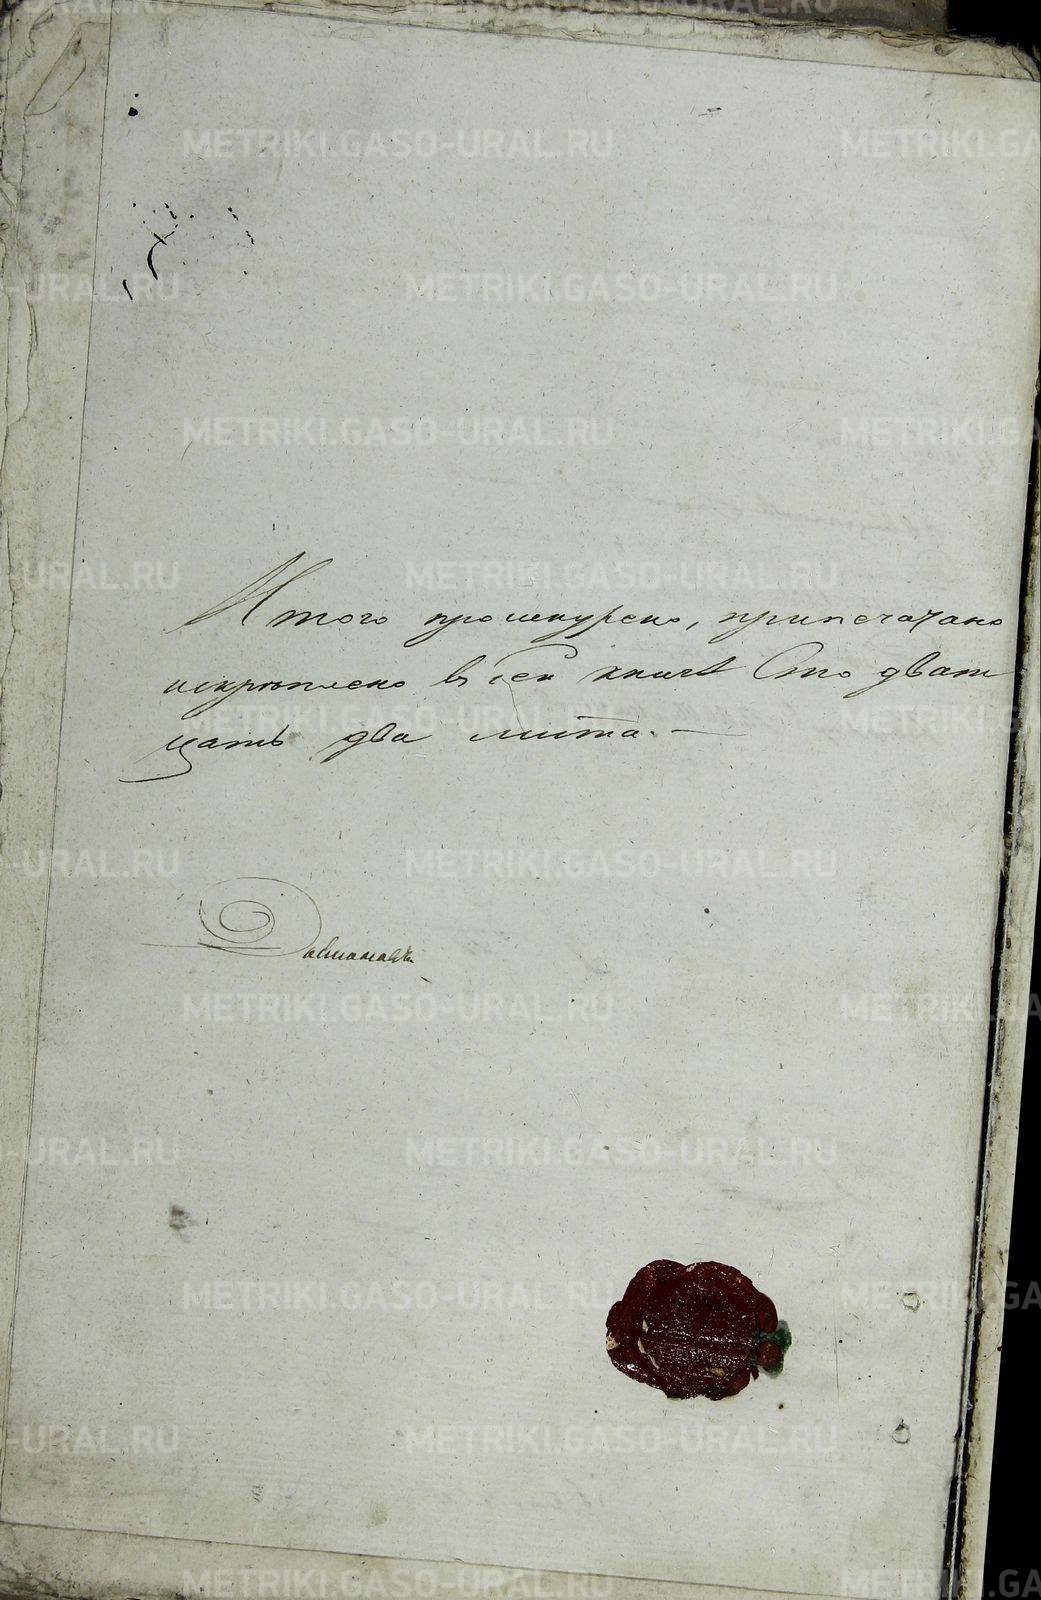 METRIKI.GASO-URAL.RU
Итого прошнурено, припечатано
искреплено в сей книге Сто дват
цать два листа.—